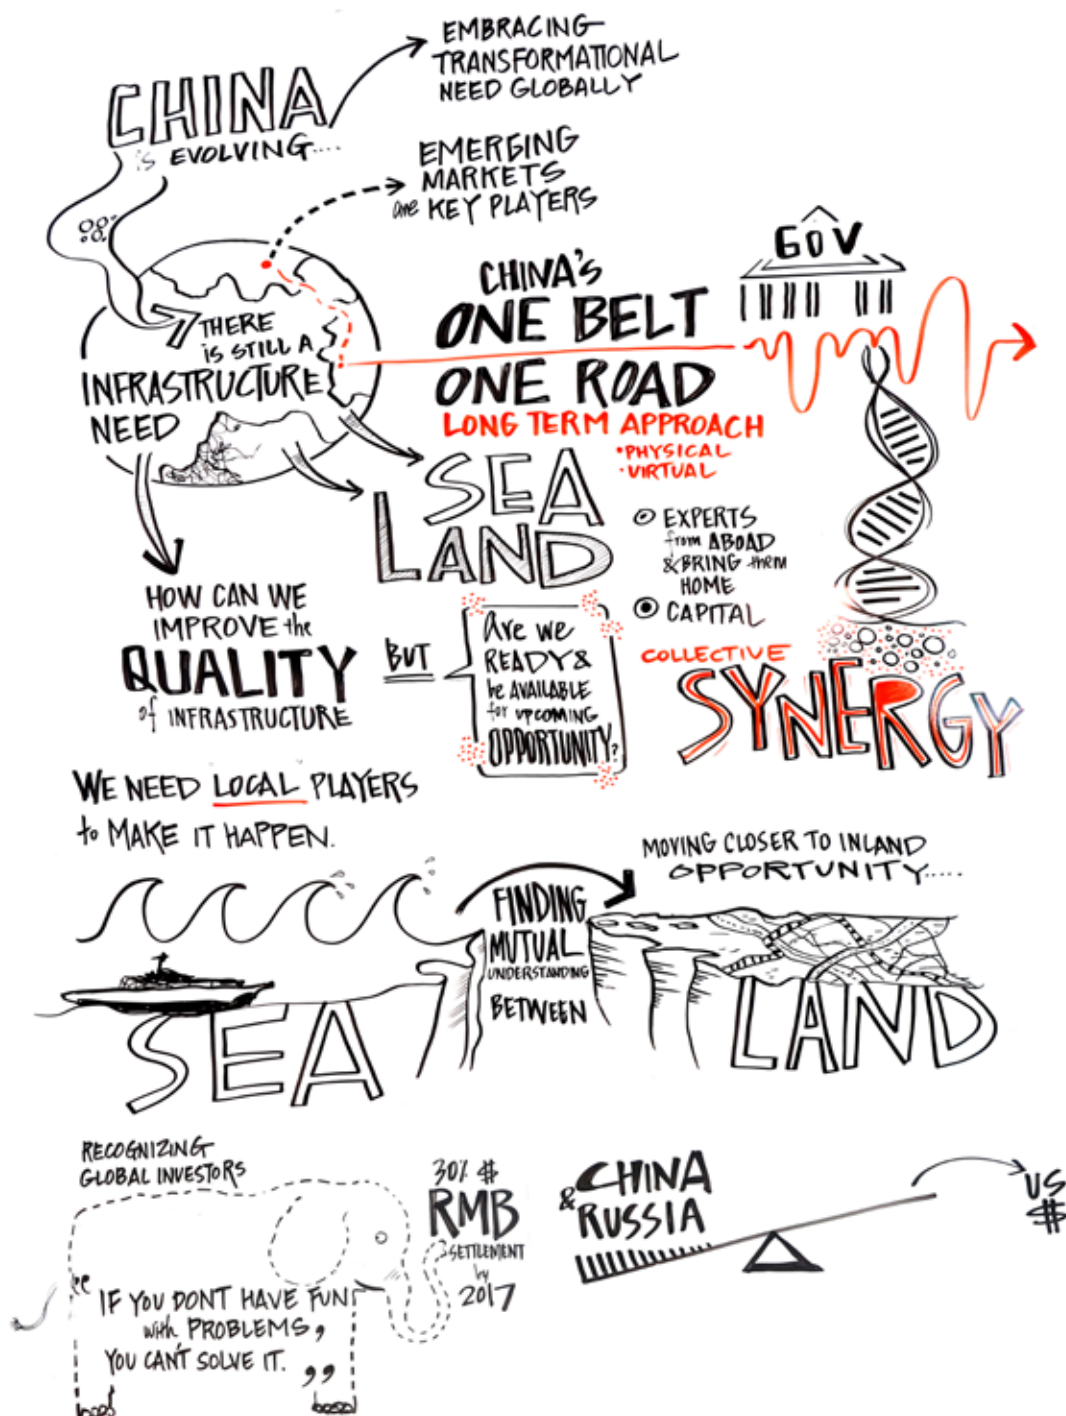 CHINA
is EVOLVING....
EMBRACING
TRANSFORMATIONAL
NEED GLOBALLY
EMERGING
MARKETS
are KEY PLAYERS
THERE
IS STILL A
INFRASTRUCTURE
NEED
CHINA'S
ONE BELT
ONE ROAD
LONG TERM APPROACH
• PHYSICAL
• VIRTUAL
GOV
SEA
LAND
EXPERTS
from ABOAD
& BRING them
HOME
CAPITAL
COLLECTIVE
SYNERGY
HOW CAN WE
IMPROVE the
QUALITY
of INFRASTRUCTURE
BUT
are we
READY &
be AVAILABLE
for UPCOMING
OPPORTUNITY?
WE NEED LOCAL PLAYERS
to MAKE IT HAPPEN.
MOVING CLOSER TO INLAND
OPPORTUNITY.....
FINDING
MUTUAL
UNDERSTANDING
BETWEEN
SEA
LAND
RECOGNIZING
GLOBAL INVESTORS
30% $
RMB
SETTLEMENT
by
2017
"IF YOU DONT HAVE FUN
with PROBLEMS,
YOU CAN'T SOLVE IT."
CHINA
& RUSSIA
US
$